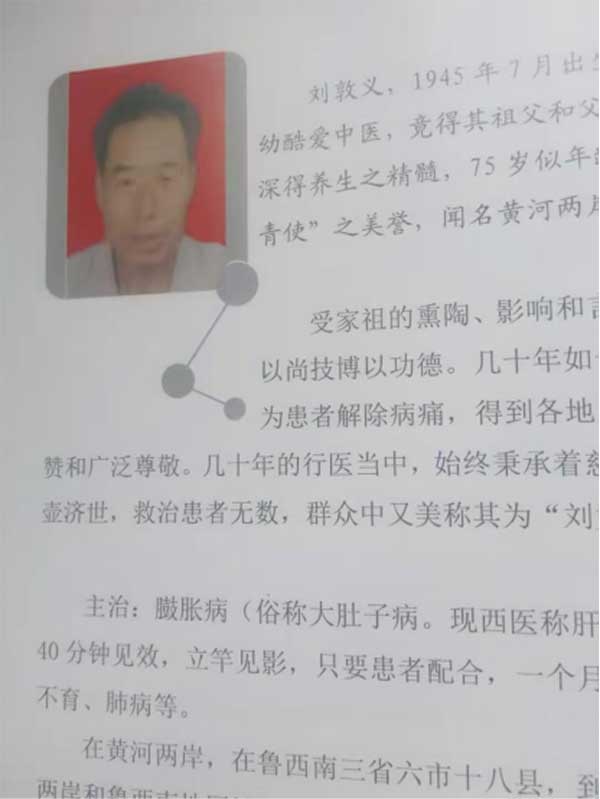 刘敦义，1945年7月出生
幼酷爱中医，竟得其祖父和父
深得养生之精髓，75岁似年
青使”之美誉，闻名黄河两岸
受家祖的熏陶、影响和言
以尚技博以功德。几十年如
为患者解除病痛，得到各地
赞和广泛尊敬。几十年的行医当中，始终秉承着慈
壶济世，救治患者无数，群众中又美称其为“刘
主治：臌胀病（俗称大肚子病。现西医称肝
40分钟见效，立竿见影，只要患者配合，一个月
不育、肺病等。
在黄河两岸，在鲁西南三省六市十八县，到
两岸和鲁西南地